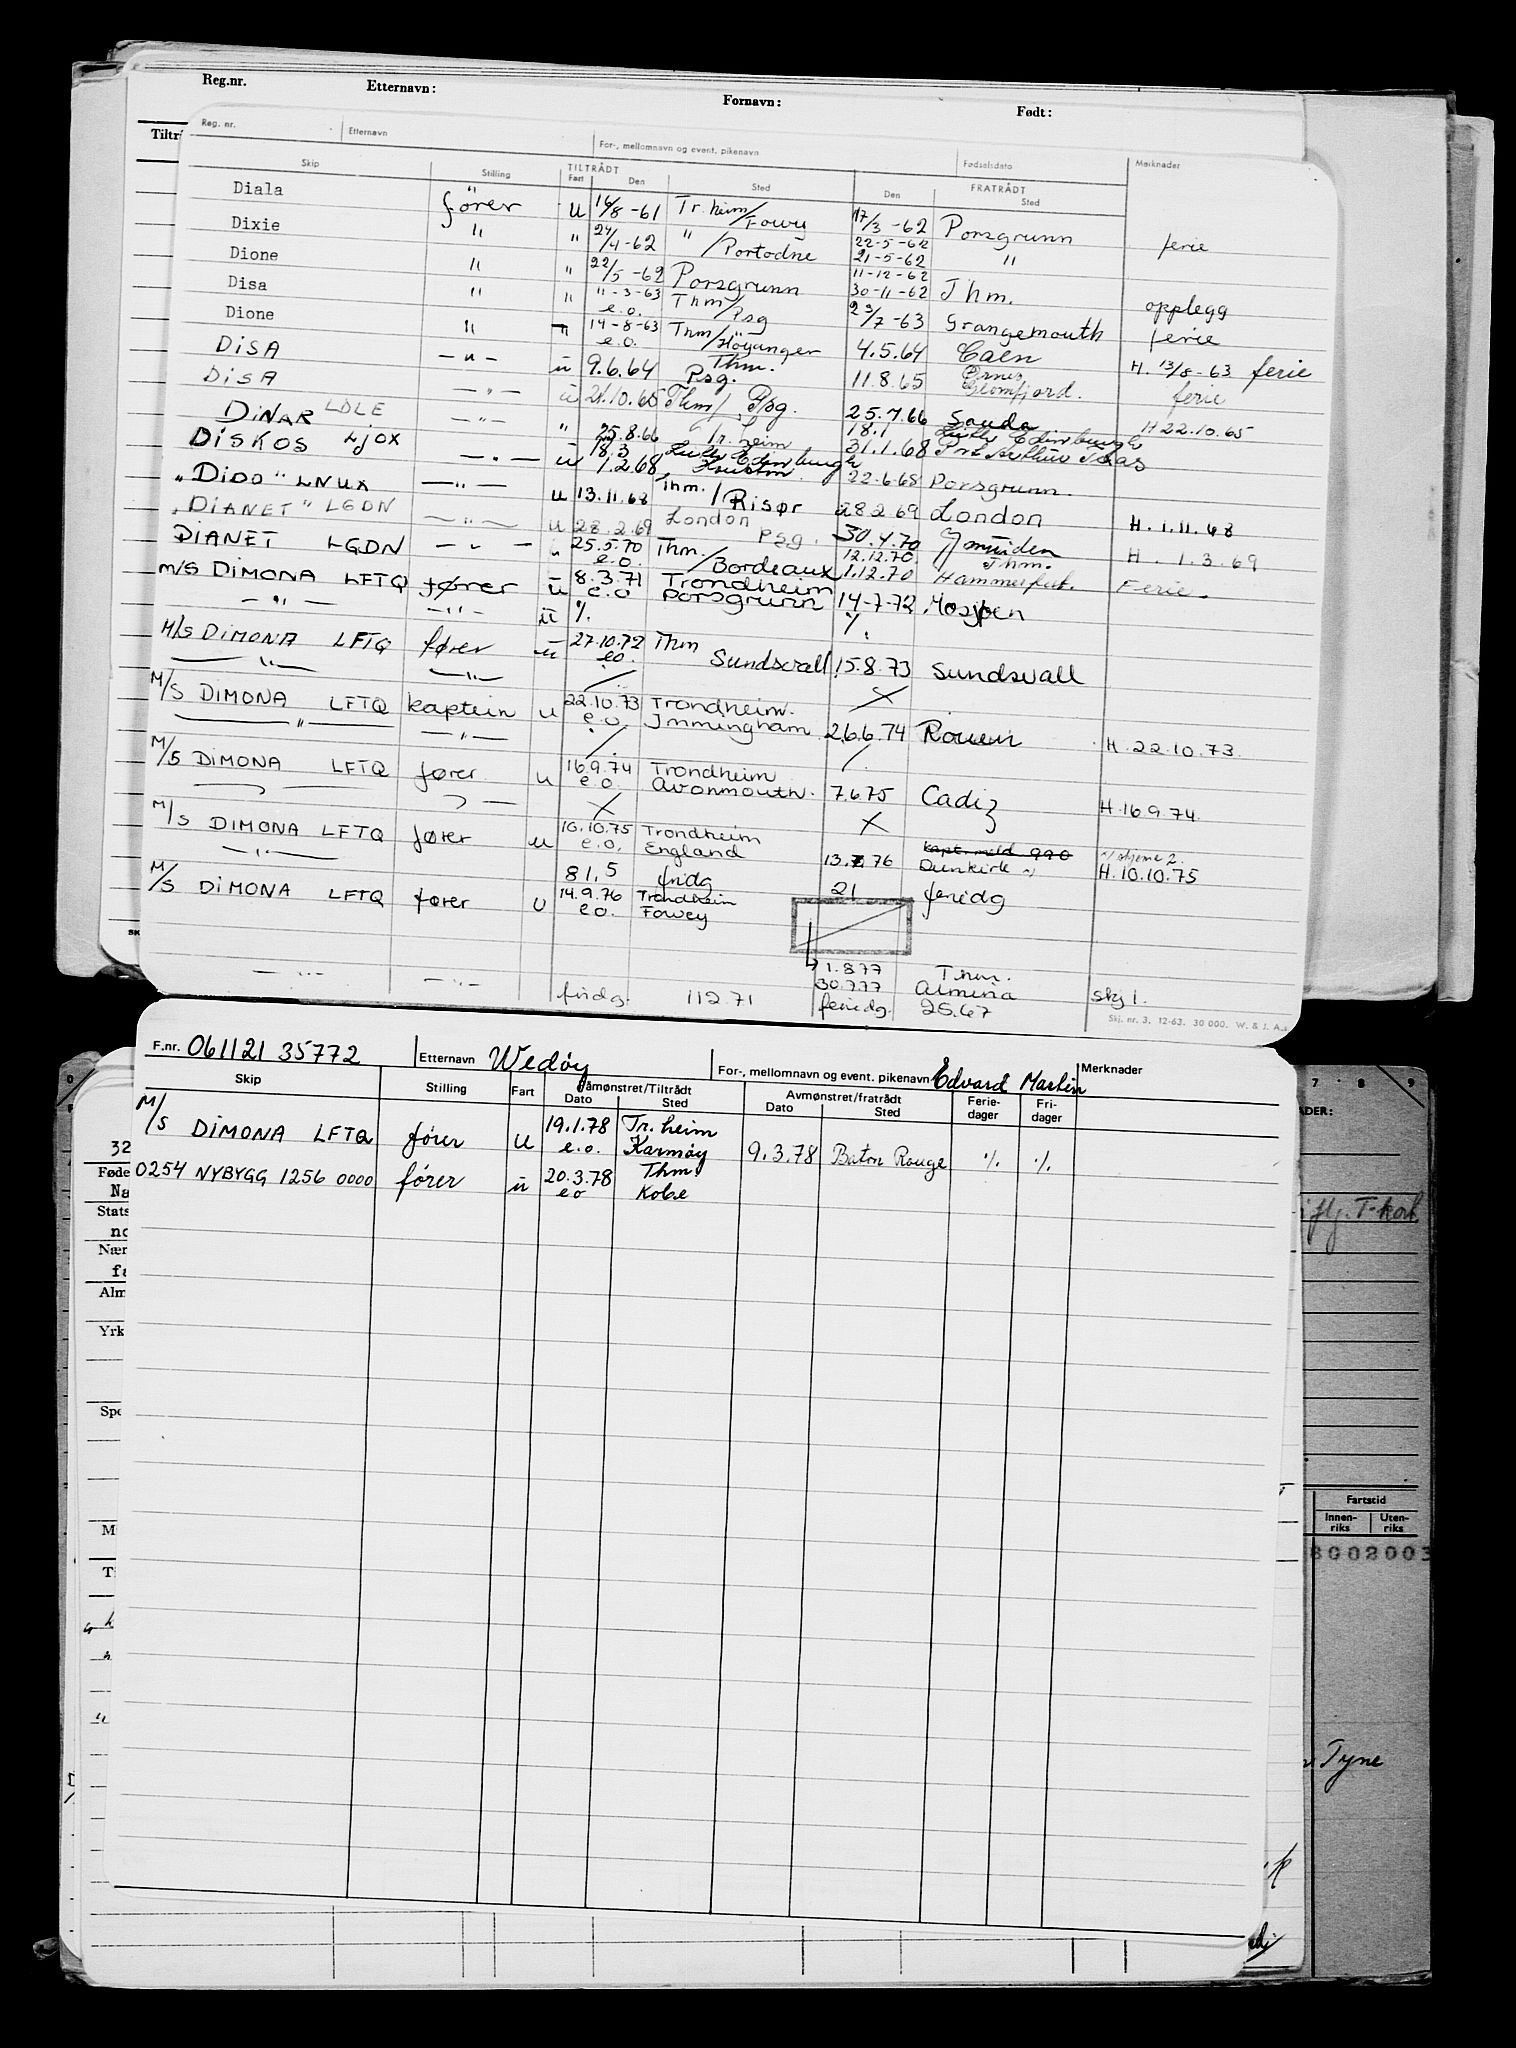 Reg.nr. Etternavn: Fornavn: Født:
Tiltr
Reg. nr. Etternavn For-, mellomnavn og event. pikenavn Fødselsdato Merknader
Skip Stilling TILTRÅDT FRATRÅDT
Fart Den Sted Den Sted
Diala fører u 16/8-61 Tr.heim/Fowey 17/3-62 Porsgrunn ferie
Dixie " " 24/4-62 " / 22-5-62
21-5-62 "
Dione " " 22/5-62 Porsgrunn 11-12-62
30-11-62 Thm. opplegg
Disa " " 11-3-63 Thm/Psg 23/7-63 Grangemouth ferie
e.o.
Dione " " 14-8-63 Thm/Höyanger 4.5.64 Caen H. 13/8-63 ferie
e.o.
DISA -"- u 9.6.64 Thm. Psg. 11.8.65 Ørnes Glomfjord. ferie
DISA -"- u 21.10.65 Thm/Psg. 25.7.66 Sauda H 22.10.65
DINAR LDLE -"- " 25.8.66 Tr.heim 18.1
DISKOS LJOX -"- u 18.3 Edinburgh 31.1.68
"DIDO" LNUX -"- 1.2.68 Houston 22-6-68 Porsgrunn.
u 13.11.68 Thm./Risør 28.2.69 London H. 1.11.68
"DIANET" LGDN -"- u 28.2.69 London Psg. 30.4.70 H. 1.3.69
DIANET LGDN -"- " 25.5.70 Thm./Bordeaux 12.12.70 Thm.
e.o. 1.12.70 Hammerfest. Ferie.
m/s DIMONA LFTQ fører u 8.3.71 Trondheim
-"- -"- e.o Porsgrunn 14-7-72 Mosjøen
M/S DIMONA LFTQ fører u 27.10.72 Thm
-"- -"- e.o. Sundsvall 15.8.73 Sundsvall
M/S DIMONA LFTQ kaptein u 22.10.73 Trondheim.
-"- -"- e.o. Immingham 26.6.74 Rouen H.22.10.73
M/S DIMONA LFTQ fører u 16.9.74 Trondheim
e.o. Avonmouth. 7.6.75 Cadiz H.16.9.74
M/S DIMONA LFTQ fører u 10.10.75 Trondheim kapt. meld 990 skjema 2.
-"- e.o. England 13.7.76 Dunkirk H.10.10.75
81,5 fridg 21 feriedg
M/S DIMONA LFTQ fører u 14.9.76 Trondheim
e.o. Fowey
-"- -"- 1.8.77 Thm.
30.7.77 Almeria skj 1.
fridg. 112.71 feriedg. 25.67
Skj. nr. 3. 12-63. 30 000. W. & J. A.s
F.nr. 061121 35772 Etternavn Wedøy For-, mellomnavn og event. pikenavn Edvard Martin Merknader
Skip Stilling Fart Påmønstret/Tiltrådt Avmønstret/fratrådt Ferie-dager Fri-dager
Dato Sted Dato Sted
M/S DIMONA LFTQ fører u 19.1.78 Tr.heim
e.o. Karmøy 9.3.78 Baton Rouge % %
0254 NYBYGG 1256 0000 fører u 20.3.78 Thm
eo Kobe
7 8 9
ADER:
32
Føde
Na
Stats
no
Nær
fa
Alm
Yrk
Spe
M
T
T-kort
Fartstid
Innen-riks Uten-riks
8002003
Tyne